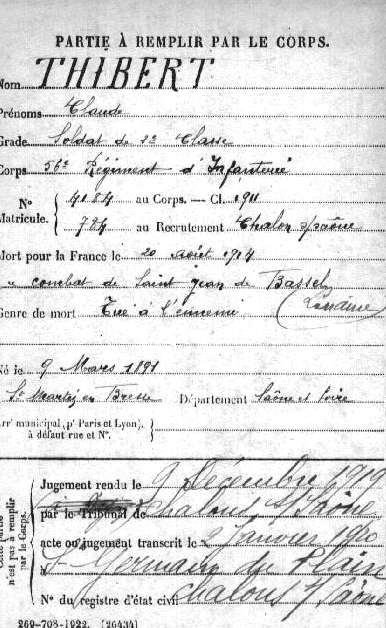 PARTIE À REMPLIR PAR LE CORPS.
Nom THIBERT
Prénoms Claude
Grade Soldat de 2e Classe
Corps 56e Régiment d'Infanterie
N° Matricule. 4184 au Corps. — Cl. 1911
784 au Recrutement Chalon s/saône
Mort pour la France le 20 août 1914
combat de Saint jean de Bassel
(Lorraine)
Genre de mort Tué à l'ennemi
Né le 9 Mars 1891
St Martin en Bresse Département Saône et Loire
Arrt municipal (pr Paris et Lyon),
à défaut rue et N°.
Cette partie
n'est pas à remplir
par le Corps.
Jugement rendu le 9 Décembre 1919
par le Tribunal de Chalons s/Saône
acte ou jugement transcrit le Janvier 1920
St Germain du Plain
N° du registre d'état civil Chalons s/Saône
269-708-1922. [26434]